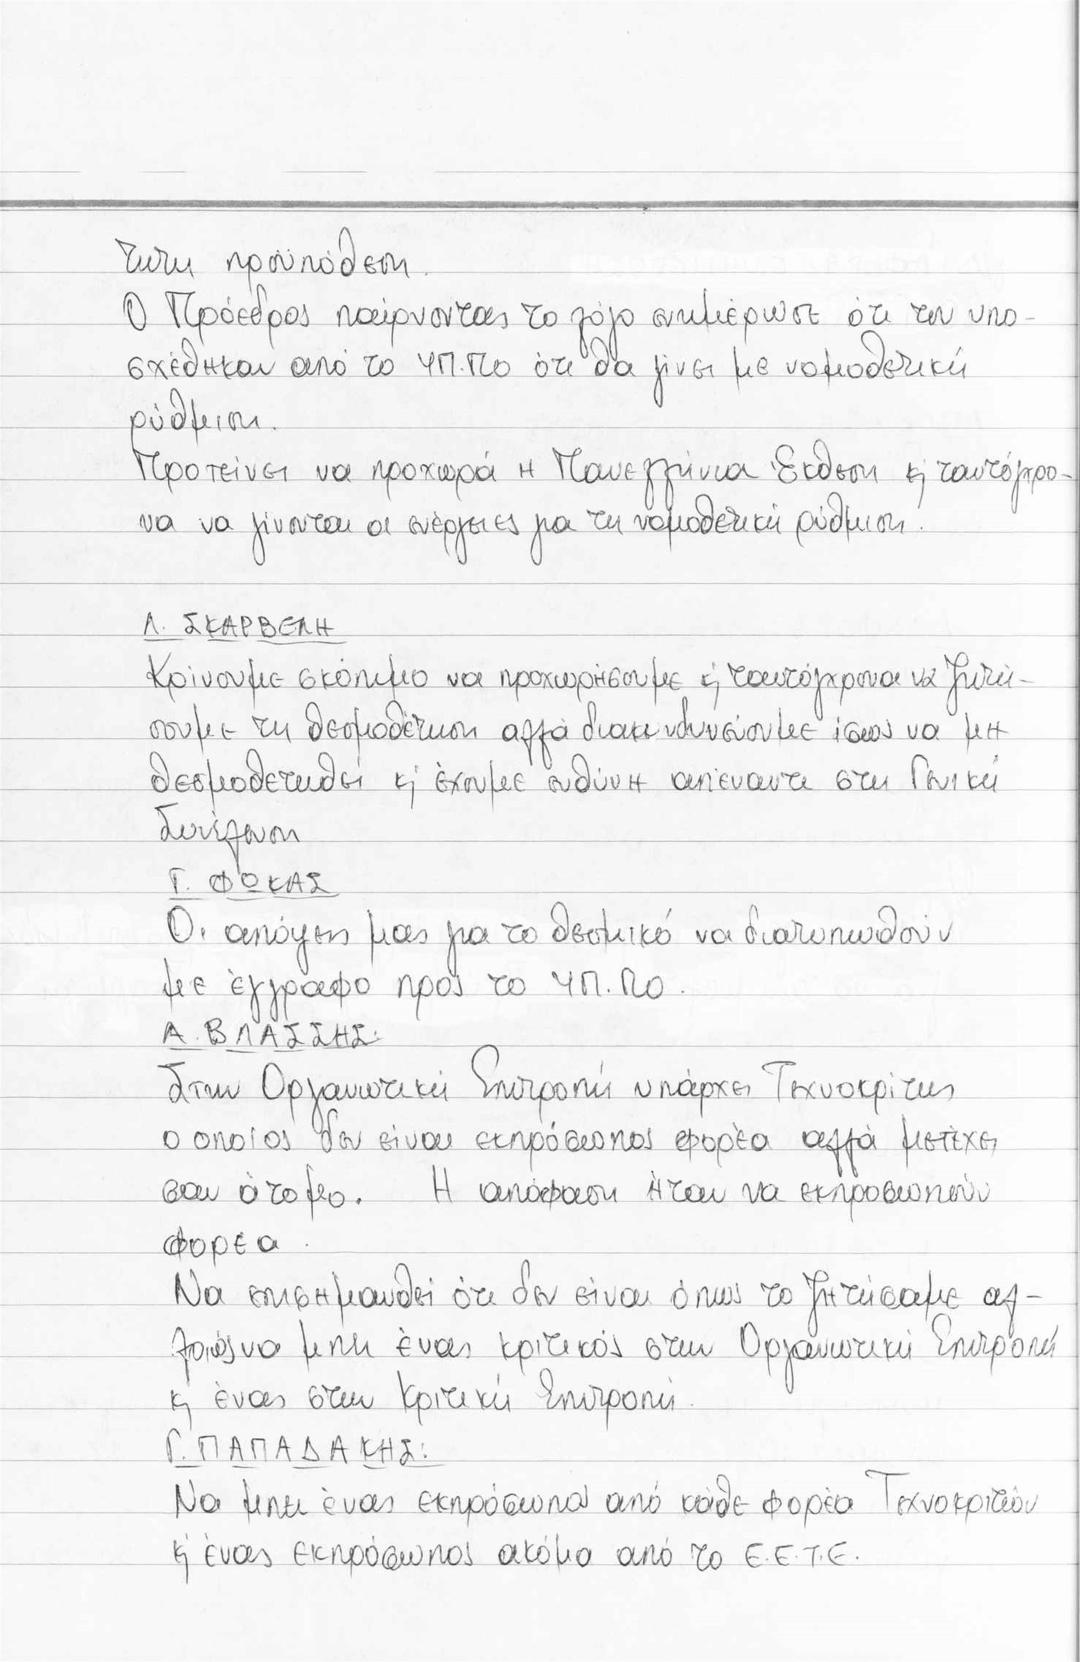 τητη προϋπόθεση.
Ο Πρόεδρος παίρνοντας το λόγο ενημέρωσε ότι του υπο-
σχέθηκαν από το ΥΠ.Πο ότι θα γίνει με νομοθετική
ρύθμιση.
Προτείνει να προχωρά η Πανελλήνια Έκθεση κ' ταυτόχρο-
να να γίνονται οι ενέργειες για τη νομοθετική ρύθμιση.
Λ. ΣΚΑΡΒΕΛΗ
Κρίνουμε σκόπιμο να προχωρήσουμε κ' ταυτόχρονα να ζητή-
σουμε τη θεσμοθέτηση αλλά διακινδυνεύουμε ίσως να μη
θεσμοθετηθεί κ' έχουμε ευθύνη απέναντι στη Γενική
Συνέλευση
Γ. ΦΩΚΑΣ
Οι απόψεις μας για το θεσμικό να διατυπωθούν
με έγγραφο προς το ΥΠ.Πο.
Α. ΒΛΑΣΣΗΣ:
Στην Οργανωτική Επιτροπή υπάρχει Τεχνοκρίτης
ο οποίος δεν είναι εκπρόσωπος φορέα αλλά μετέχει
σαν άτομο. Η απόφαση ήταν να εκπροσωπούν
φορέα.
Να επισημανθεί ότι δεν είναι όπως το ζητήσαμε αλ-
λοιώς να μπει ένας κριτικός στην Οργανωτική Επιτροπή
κ' ένας στην Κριτική Επιτροπή.
Γ. ΠΑΠΑΔΑΚΗΣ:
Να μπει ένας εκπρόσωπος από κάθε φορέα Τεχνοκριτών
κ' ένας εκπρόσωπος ακόμα από το Ε.Ε.Τ.Ε.